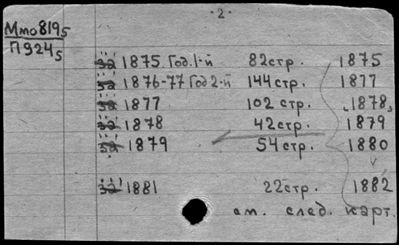 - 2 -
Ммо 819₅
П924₅
за 1875 Год.1-й 82стр. 1875
за 1876-77 Год 2-й 144стр. 1877
за 1877 102 стр. 1878,
за 1878 42стр. 1879
за 1879 54стр. 1880
за 1881 22стр. 1882
см. след. карт.